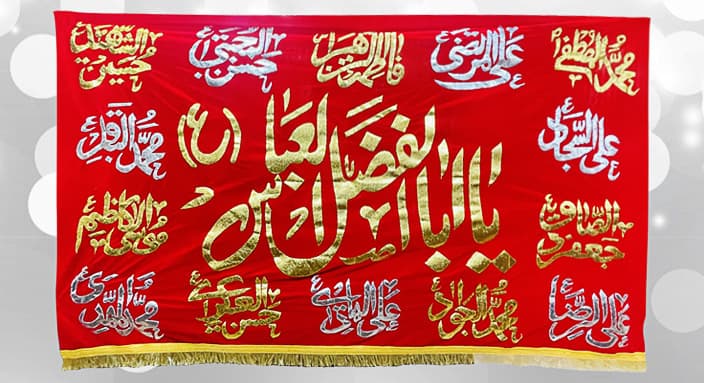 محمد المصطفی علی المرتضی فاطمة الزهرا حسن المجتبی حسین الشهید
علی السجاد محمد الباقر
یا اباالفضل العباس (ع)
جعفر الصادق موسی الکاظم
علی الرضا محمد الجواد علی الهادی حسن العسکری محمد المهدی